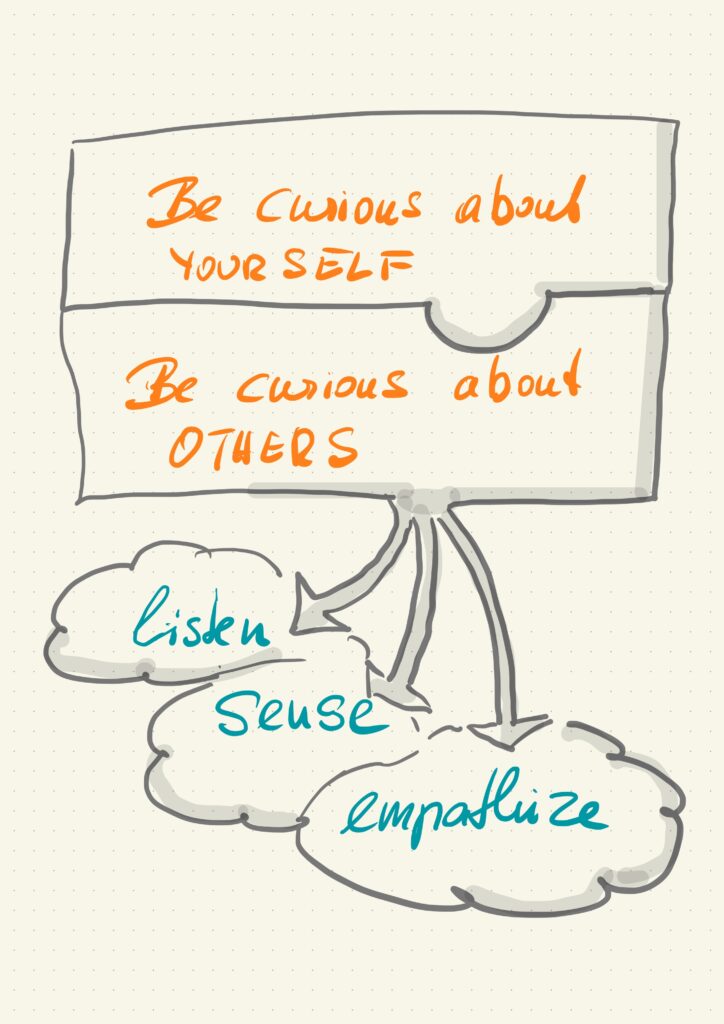 Be curious about
YOURSELF
Be curious about
OTHERS
listen
sense
empathize